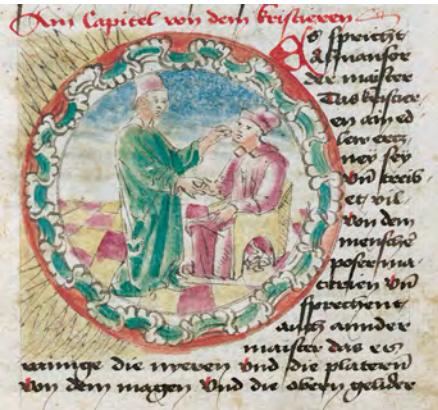 Ain Capitel von dem kristieren
Es spricht
Almansor
der maister
Das kristier
en ain ed
lew ertz
ney sey
vnd treib
et vil
von dem
menschen
poser ma
terien vnd
sprechent
auch annder
maister das es
rainige die nyeren vnd die plateren
von dem magen vnd die obern gelider